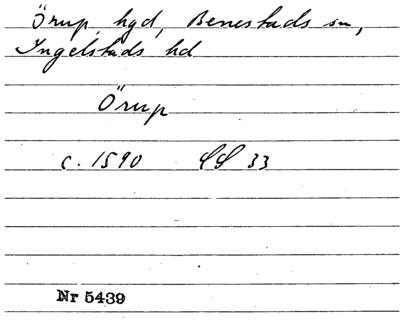 Örup, hgd, Benestads sn,
Ingelstads hd
Örup
c. 1590 SS 33
Nr 5439